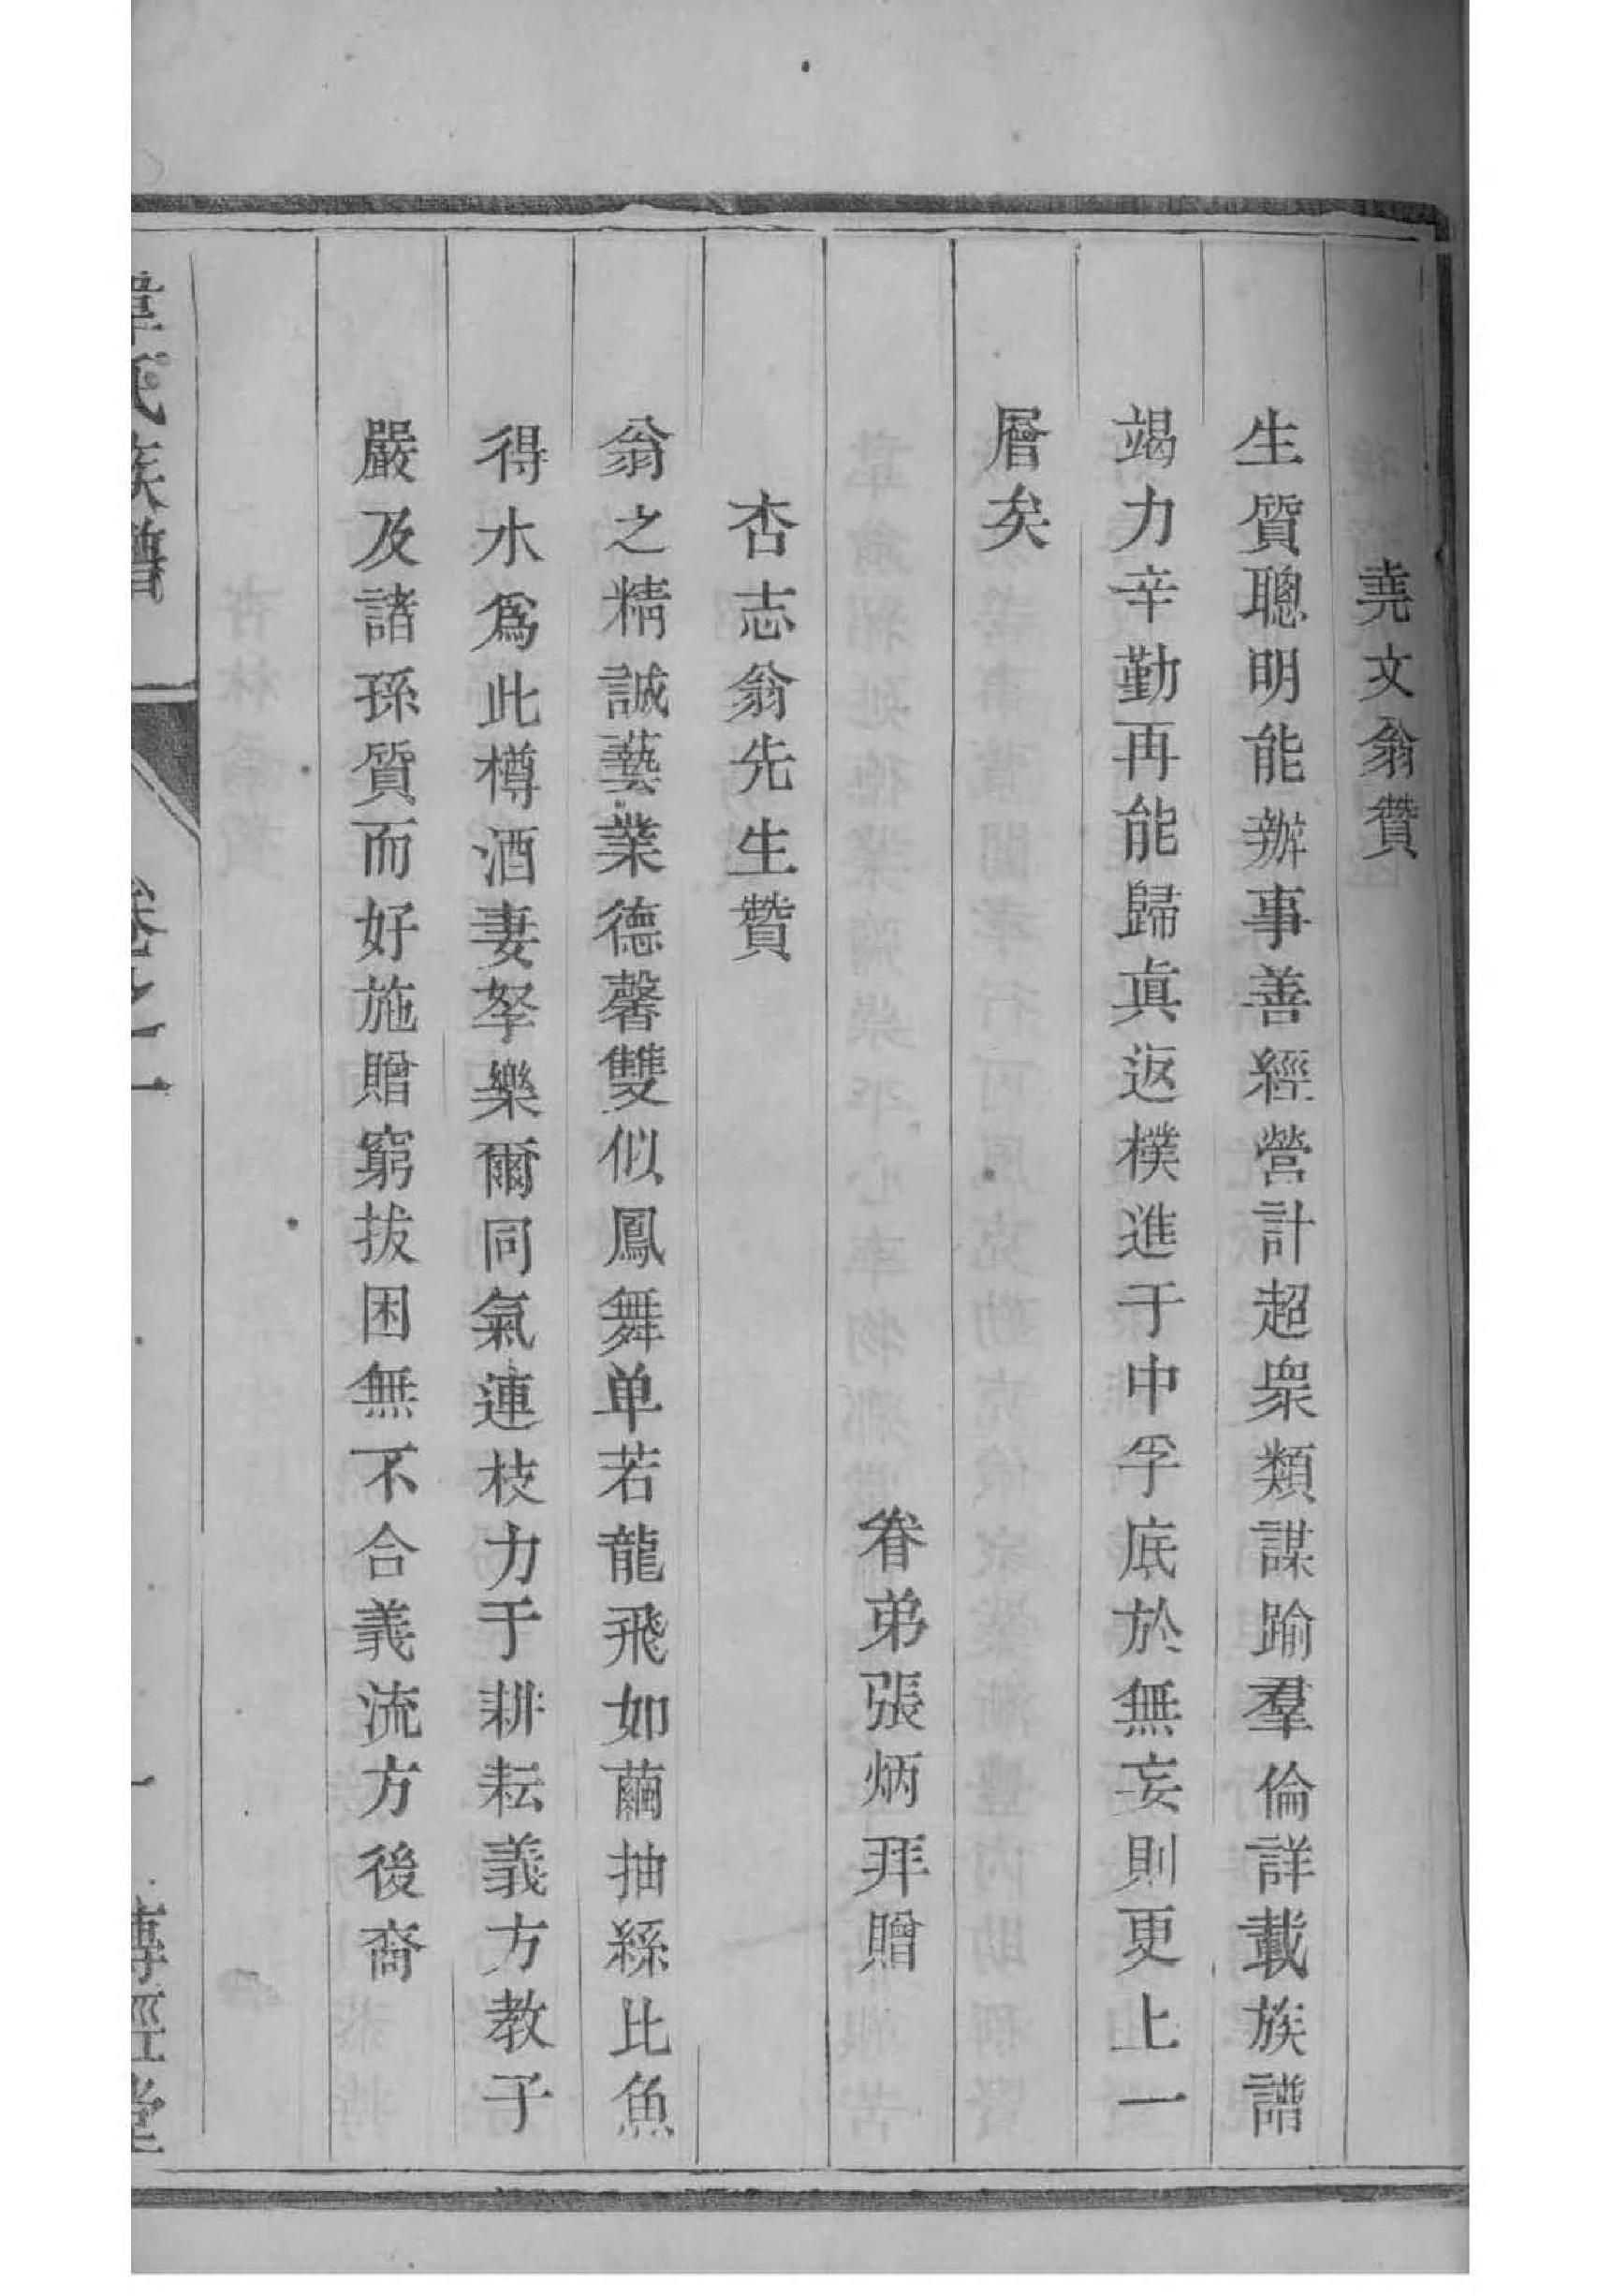 堯文翁贊
生質聰明能辦事善經營計超衆類謀踰羣倫詳載族譜
竭力辛勤再能歸眞返樸進于中孚底於無妄則更上一
層矣
眷弟張炳拜贈
杏志翁先生贊
翁之精誠藝業德馨雙似鳳舞单若龍飛如繭抽絲比魚
得水為此樽酒妻孥樂爾同氣連枝力于耕耘義方教子
嚴及諸孫質而好施贈窮拔困無不合義流方後裔
韋氏族譜
卷之一
一
傳經堂